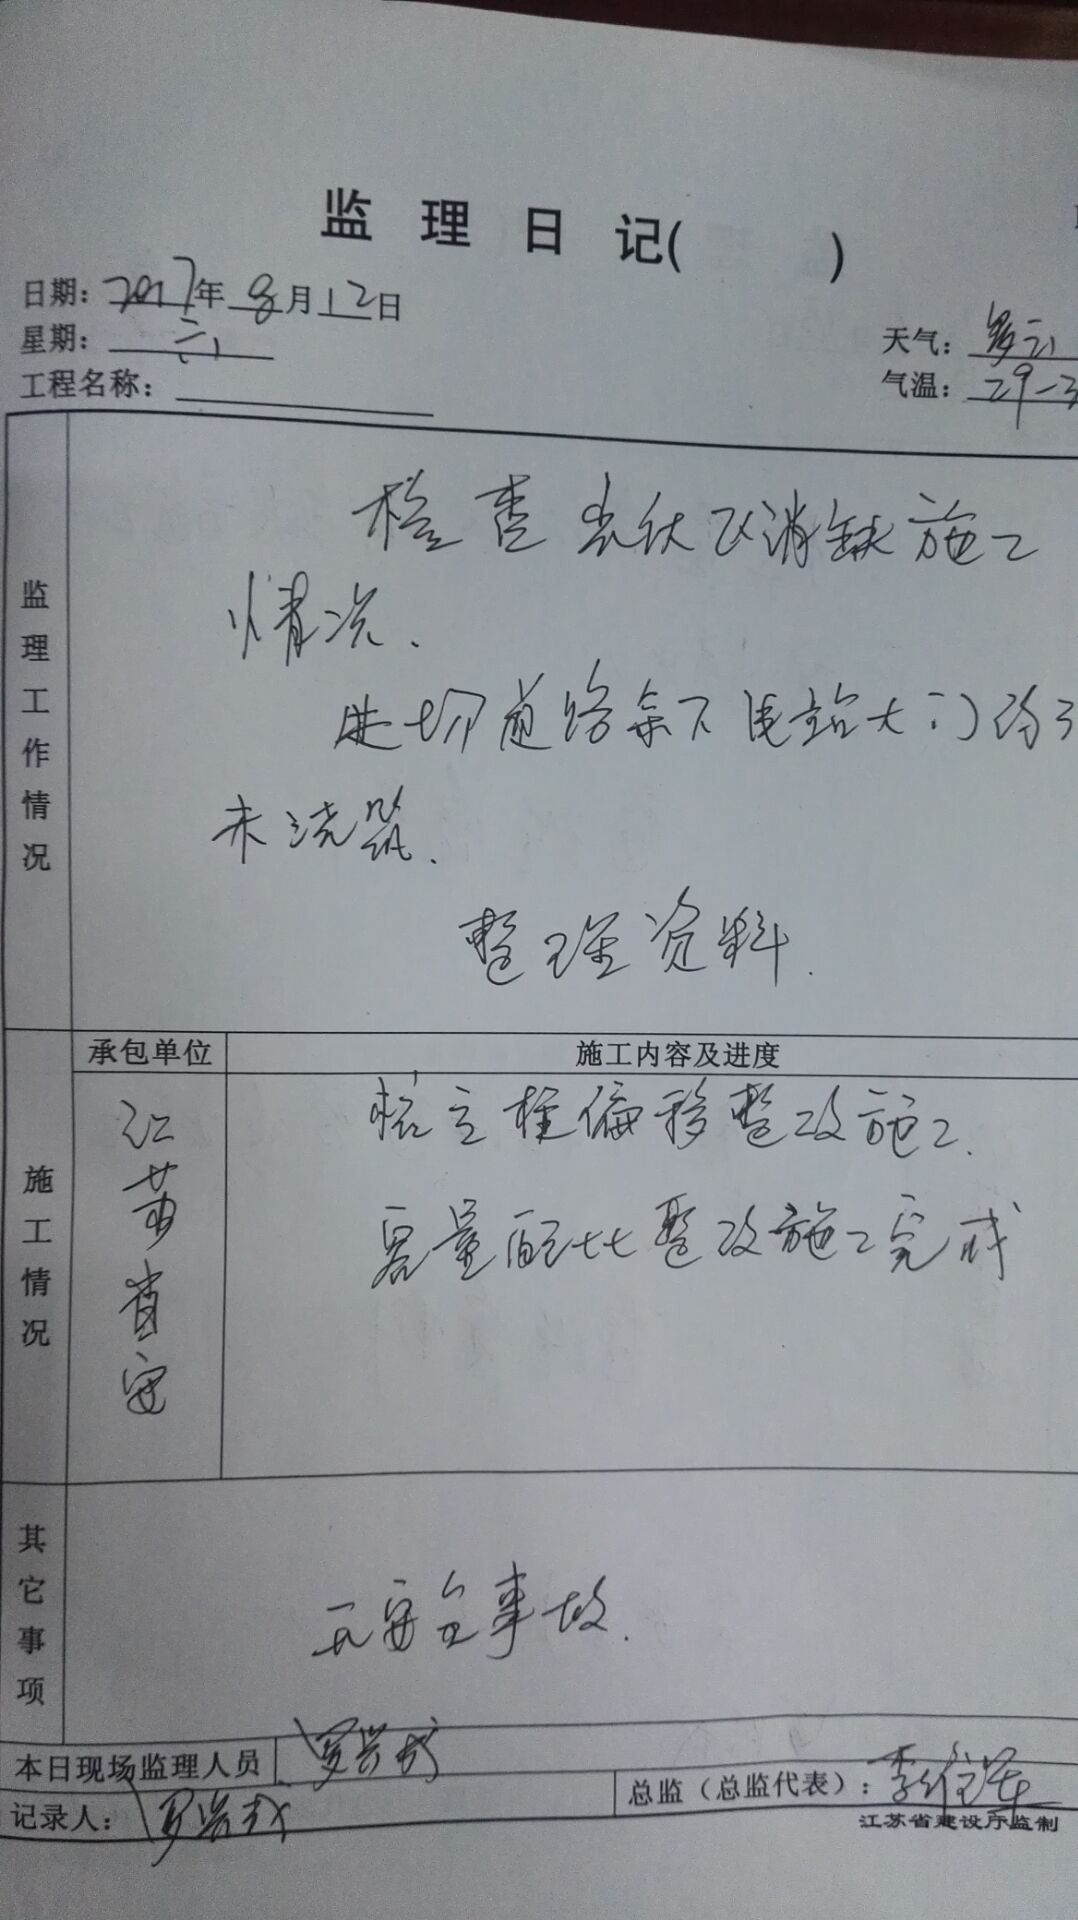 监理日记( )
日期：2017年8月12日
星期：六
天气：多云
工程名称：
气温：29-3
监理工作情况
检查光伏区消缺施工
情况.
进场道路余下 电站大门
未浇筑.
整理资料.
承包单位
施工内容及进度
施工情况
江苏
安
立柱偏移整改施工.
容量配比整改施工完成
其它事项
无安全事故.
本日现场监理人员
罗兴成
记录人：罗兴成
总监（总监代表）：李
江苏省建设厅监制